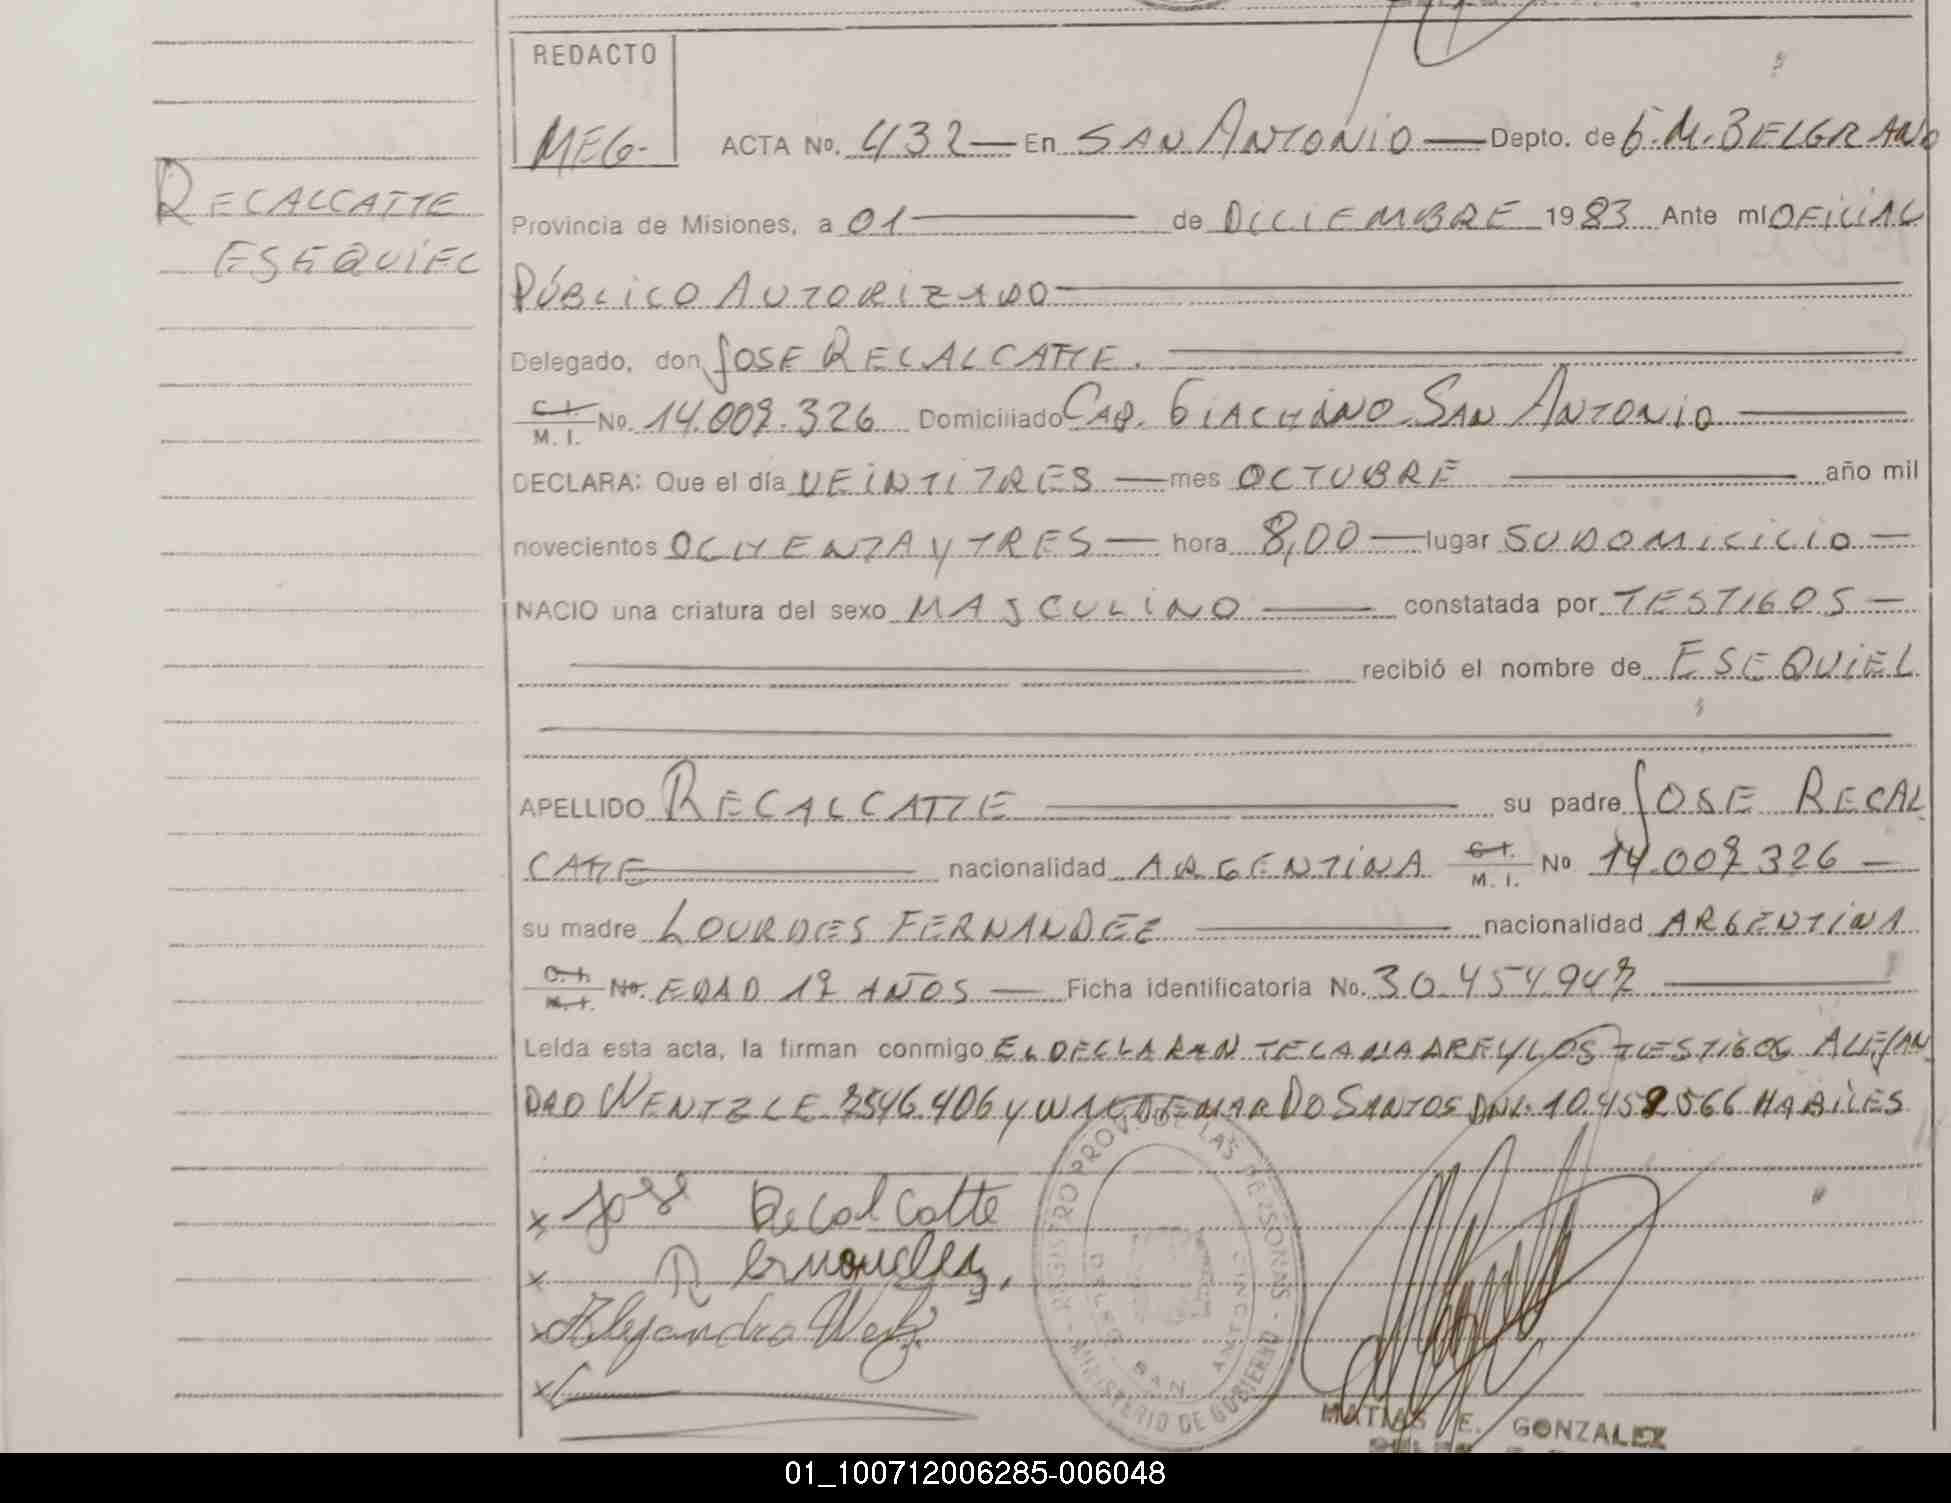 REDACTO
MEG-
ACTA No. 432 En SAN ANTONIO Depto. de G.M. BELGRANO
RECALCATTE
ESEQUIEL
Provincia de Misiones, a 01 de DICIEMBRE 1983 Ante mi OFICIAL
PÚBLICO AUTORIZADO
Delegado, don JOSE RECALCATTE.
C.I.
M. I. No. 14.009.326 Domiciliado CAP. GIACHINO SAN ANTONIO
DECLARA: Que el día VEINTITRES mes OCTUBRE año mil
novecientos OCHENTA Y TRES hora 8,00 lugar SU DOMICICIO
NACIO una criatura del sexo MASCULINO constatada por TESTIGOS
recibió el nombre de ESEQUIEL
APELLIDO RECALCATTE su padre JOSE RECAL
CATTE nacionalidad ARGENTINA C.I.
M. I. No 14.009326
su madre LOURDES FERNANDEZ nacionalidad ARGENTINA
C.I.
M.I. No. EDAD 19 AÑOS Ficha identificatoria No. 30.454.947
Leída esta acta, la firman conmigo EL DECLARANTE LA MADRE Y LOS TESTIGOS ALEJAN
DRO WENTZLE 7546.406 Y WALDEMAR DO SANTOS DNI. 10.458566 HABILES
REGISTRO PROV. DE LAS PERSONAS - MINISTERIO DE GOBIERNO -
DELEG. SAN ANTONIO
x Jose Recalcatte
x
x Alejandro
x
MATIAS E. GONZALEZ
01_100712006285-006048